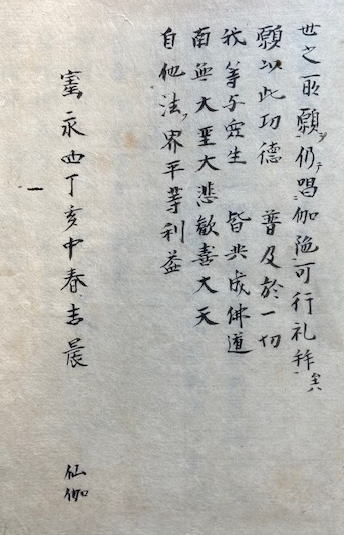 世之所願ヲ仍テ唱伽陀可行礼拜
願以此功德 普及於一切
我等与衆生 皆共成佛道
南無大聖大悲歡喜大天
自他法界平等利益
宝永四丁亥中春吉晨
仙伽